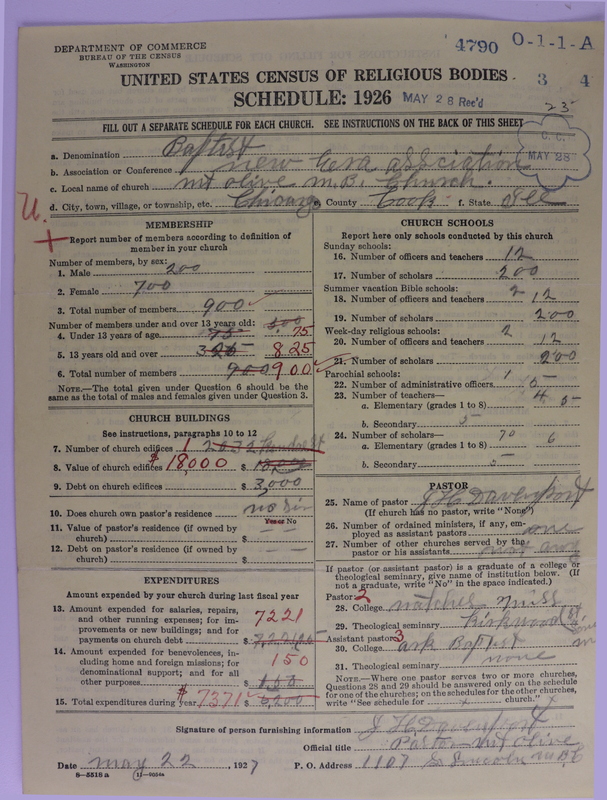 DEPARTMENT OF COMMERCE
BUREAU OF THE CENSUS
WASHINGTON
4790 O-1-1-A
3 4
UNITED STATES CENSUS OF RELIGIOUS BODIES
SCHEDULE: 1926 MAY 28 Rec'd
23
FILL OUT A SEPARATE SCHEDULE FOR EACH CHURCH. SEE INSTRUCTIONS ON THE BACK OF THIS SHEET
C. C.
MAY 28
a. Denomination Baptist
b. Association or Conference new Era association
c. Local name of church mt olive m.B. Church.
d. City, town, village, or township, etc. Chicago e. County Cook f. State Ill
U.
MEMBERSHIP
Report number of members according to definition of member in your church
Number of members, by sex:
1. Male 200
2. Female 700
3. Total number of members 900
Number of members under and over 13 years old:
4. Under 13 years of age 75 75
5. 13 years old and over 825
6. Total number of members 900 900
NOTE.—The total given under Question 6 should be
same as the total of males and females given under Question 3.
CHURCH BUILDINGS
See instructions, paragraphs 10 to 12
7. Number of church edifices 1
8. Value of church edifices $18,000 $
9. Debt on church edifices $ 3,000
10. Does church own pastor's residence? no Sir
Yes or No
11. Value of pastor's residence (if owned by
church) $
12. Debt on pastor's residence (if owned by
church) $
EXPENDITURES
Amount expended by your church during last fiscal year
13. Amount expended for salaries, repairs,
and other running expenses; for im-
provements or new buildings; and for
payments on church debt 7221 $
14. Amount expended for benevolences, in-
cluding home and foreign missions; for
denominational support; and for all
other purposes 150 $ 150
15. Total expenditures during year $7371 $
CHURCH SCHOOLS
Report here only schools conducted by this church
Sunday schools:
16. Number of officers and teachers 12
17. Number of scholars 200
Summer vacation Bible schools:
18. Number of officers and teachers 2 12
19. Number of scholars 200
Week-day religious schools: 2
20. Number of officers and teachers 12
21. Number of scholars 200
Parochial schools: 1
22. Number of administrative officers 5
23. Number of teachers—
a. Elementary (grades 1 to 8) 4 5
b. Secondary 5
24. Number of scholars—
a. Elementary (grades 1 to 8) 70 6
b. Secondary 5
PASTOR
25. Name of pastor J H Davenport
(If church has no pastor, write "None")
26. Number of ordained ministers, if any, em-
ployed as assistant pastors one
27. Number of other churches served by the
pastor or his assistants not any
If pastor (or assistant pastor) is a graduate of a college or
theological seminary, give name of institution below. (If
not a graduate, write "No" in the space indicated.)
Pastor: 2
28. College natches miss
29. Theological seminary Kirkwood
Assistant pastor: 3
30. College ark Baptist
31. Theological seminary none
NOTE.—Where one pastor serves two or more churches,
Questions 28 and 29 should be answered only on the schedule
for one of the churches; on the schedules for the other churches,
write "See schedule for x church."
Signature of person furnishing information J H Davenport
Official title Pastor mt olive
Date may 22, 1927 P. O. Address 1107 S. Lincoln
8—5518a 11—9084a